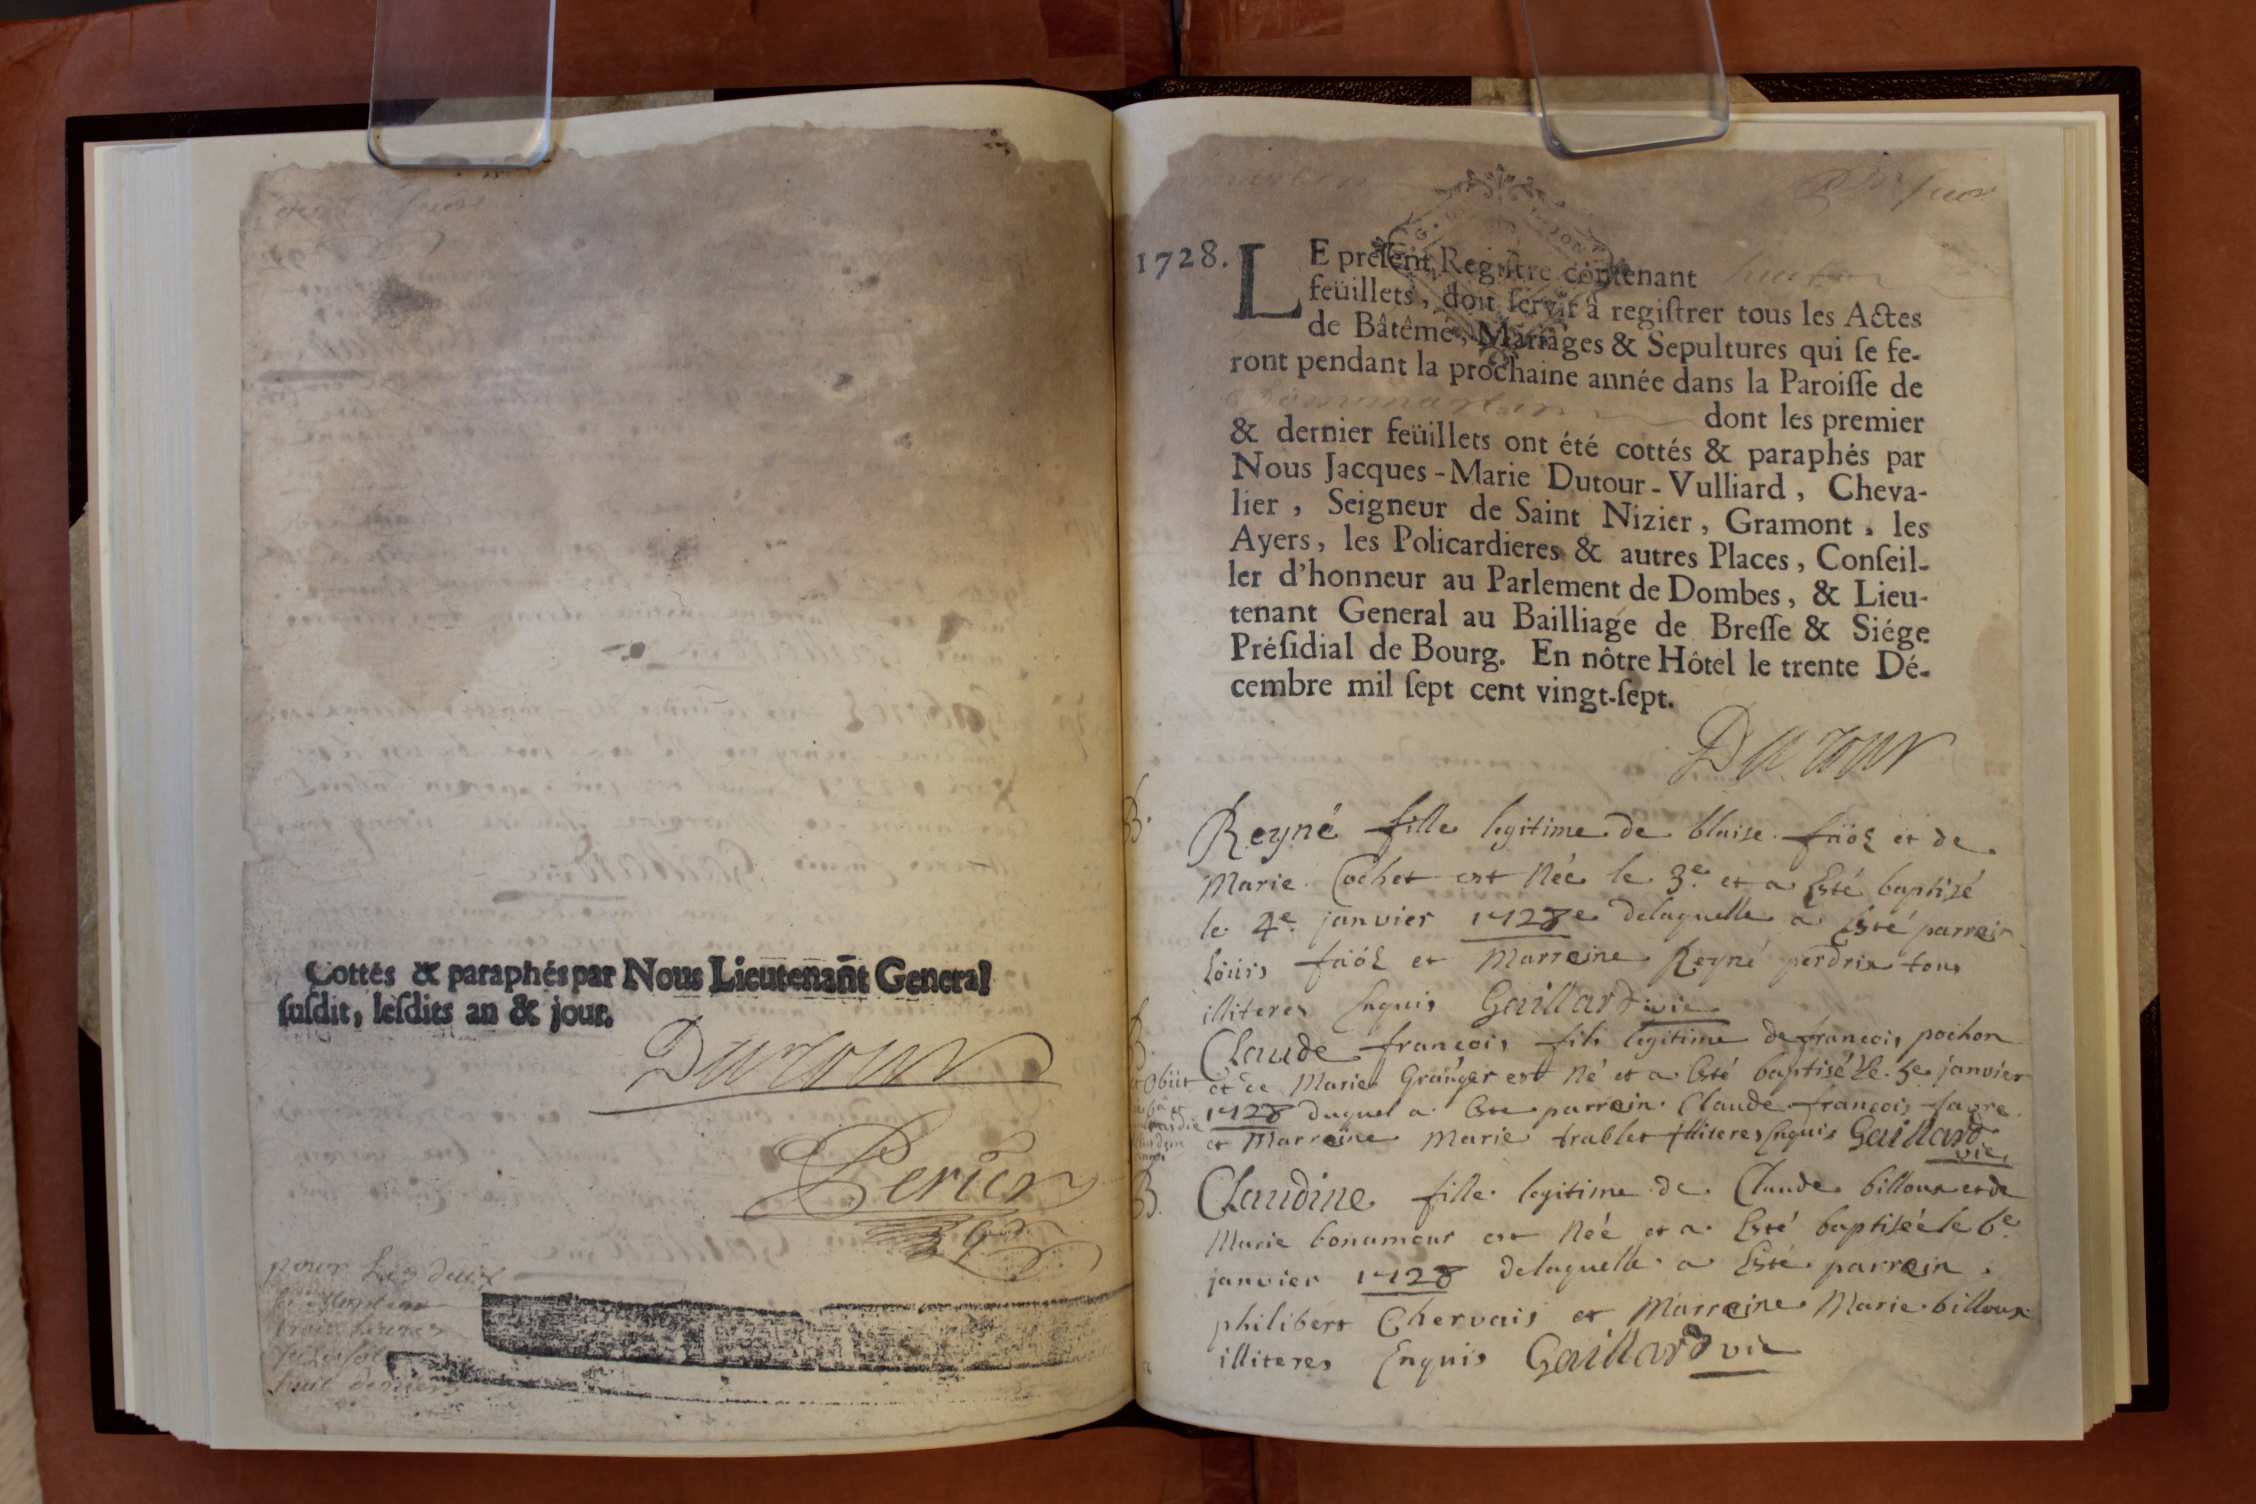 Cottés & paraphés par Nous Lieutenant General
suſdit, leſdits an & jour.
Dutour
Perier
pour les deux
trois livres
huit deniers
1728.
LE preſent Regiſtre contenant huit
feüillets, doit ſervir à regiſtrer tous les Actes
de Bâtême, Mariages & Sepultures qui ſe fe-
ront pendant la prochaine année dans la Paroiſſe de
dommartin dont les premier
& dernier feüillets ont été cottés & paraphés par
Nous Jacques-Marie Dutour-Vulliard, Cheva-
lier, Seigneur de Saint Nizier, Gramont, les
Ayers, les Policardieres & autres Places, Conſeil-
ler d'honneur au Parlement de Dombes, & Lieu-
tenant General au Bailliage de Breſſe & Siége
Préſidial de Bourg. En nôtre Hôtel le trente Dé-
cembre mil ſept cent vingt-ſept.
Dutour
B.
Reyné fille legitime de blaise faöl et de
Marie Cochet est Née le 3e. et a Esté baptisé
le 4e. janvier 1728e delaquelle a Esté parrein
löüis faöl et Marreine Reyné perdrix tous
illiteres Enquis Gaillard vic
B.
Claude françois fils legitime de françois pochon
et de Marie Granger est Né et a Esté baptisé le 5e janvier
1728 duquel a Este parrein Claude françois favre
et Marreine Marie trablet Illiteres Enquis Gaillard
vic
obiit
B.
Claudine fille legitime de Claude billoux et de
Marie bonamour est Néé et a Esté baptisée le 6e.
janvier 1728 delaquelle a Esté parrein
philibert Chervais et Marreine Marie billoux
illiteres Enquis Gaillard vic